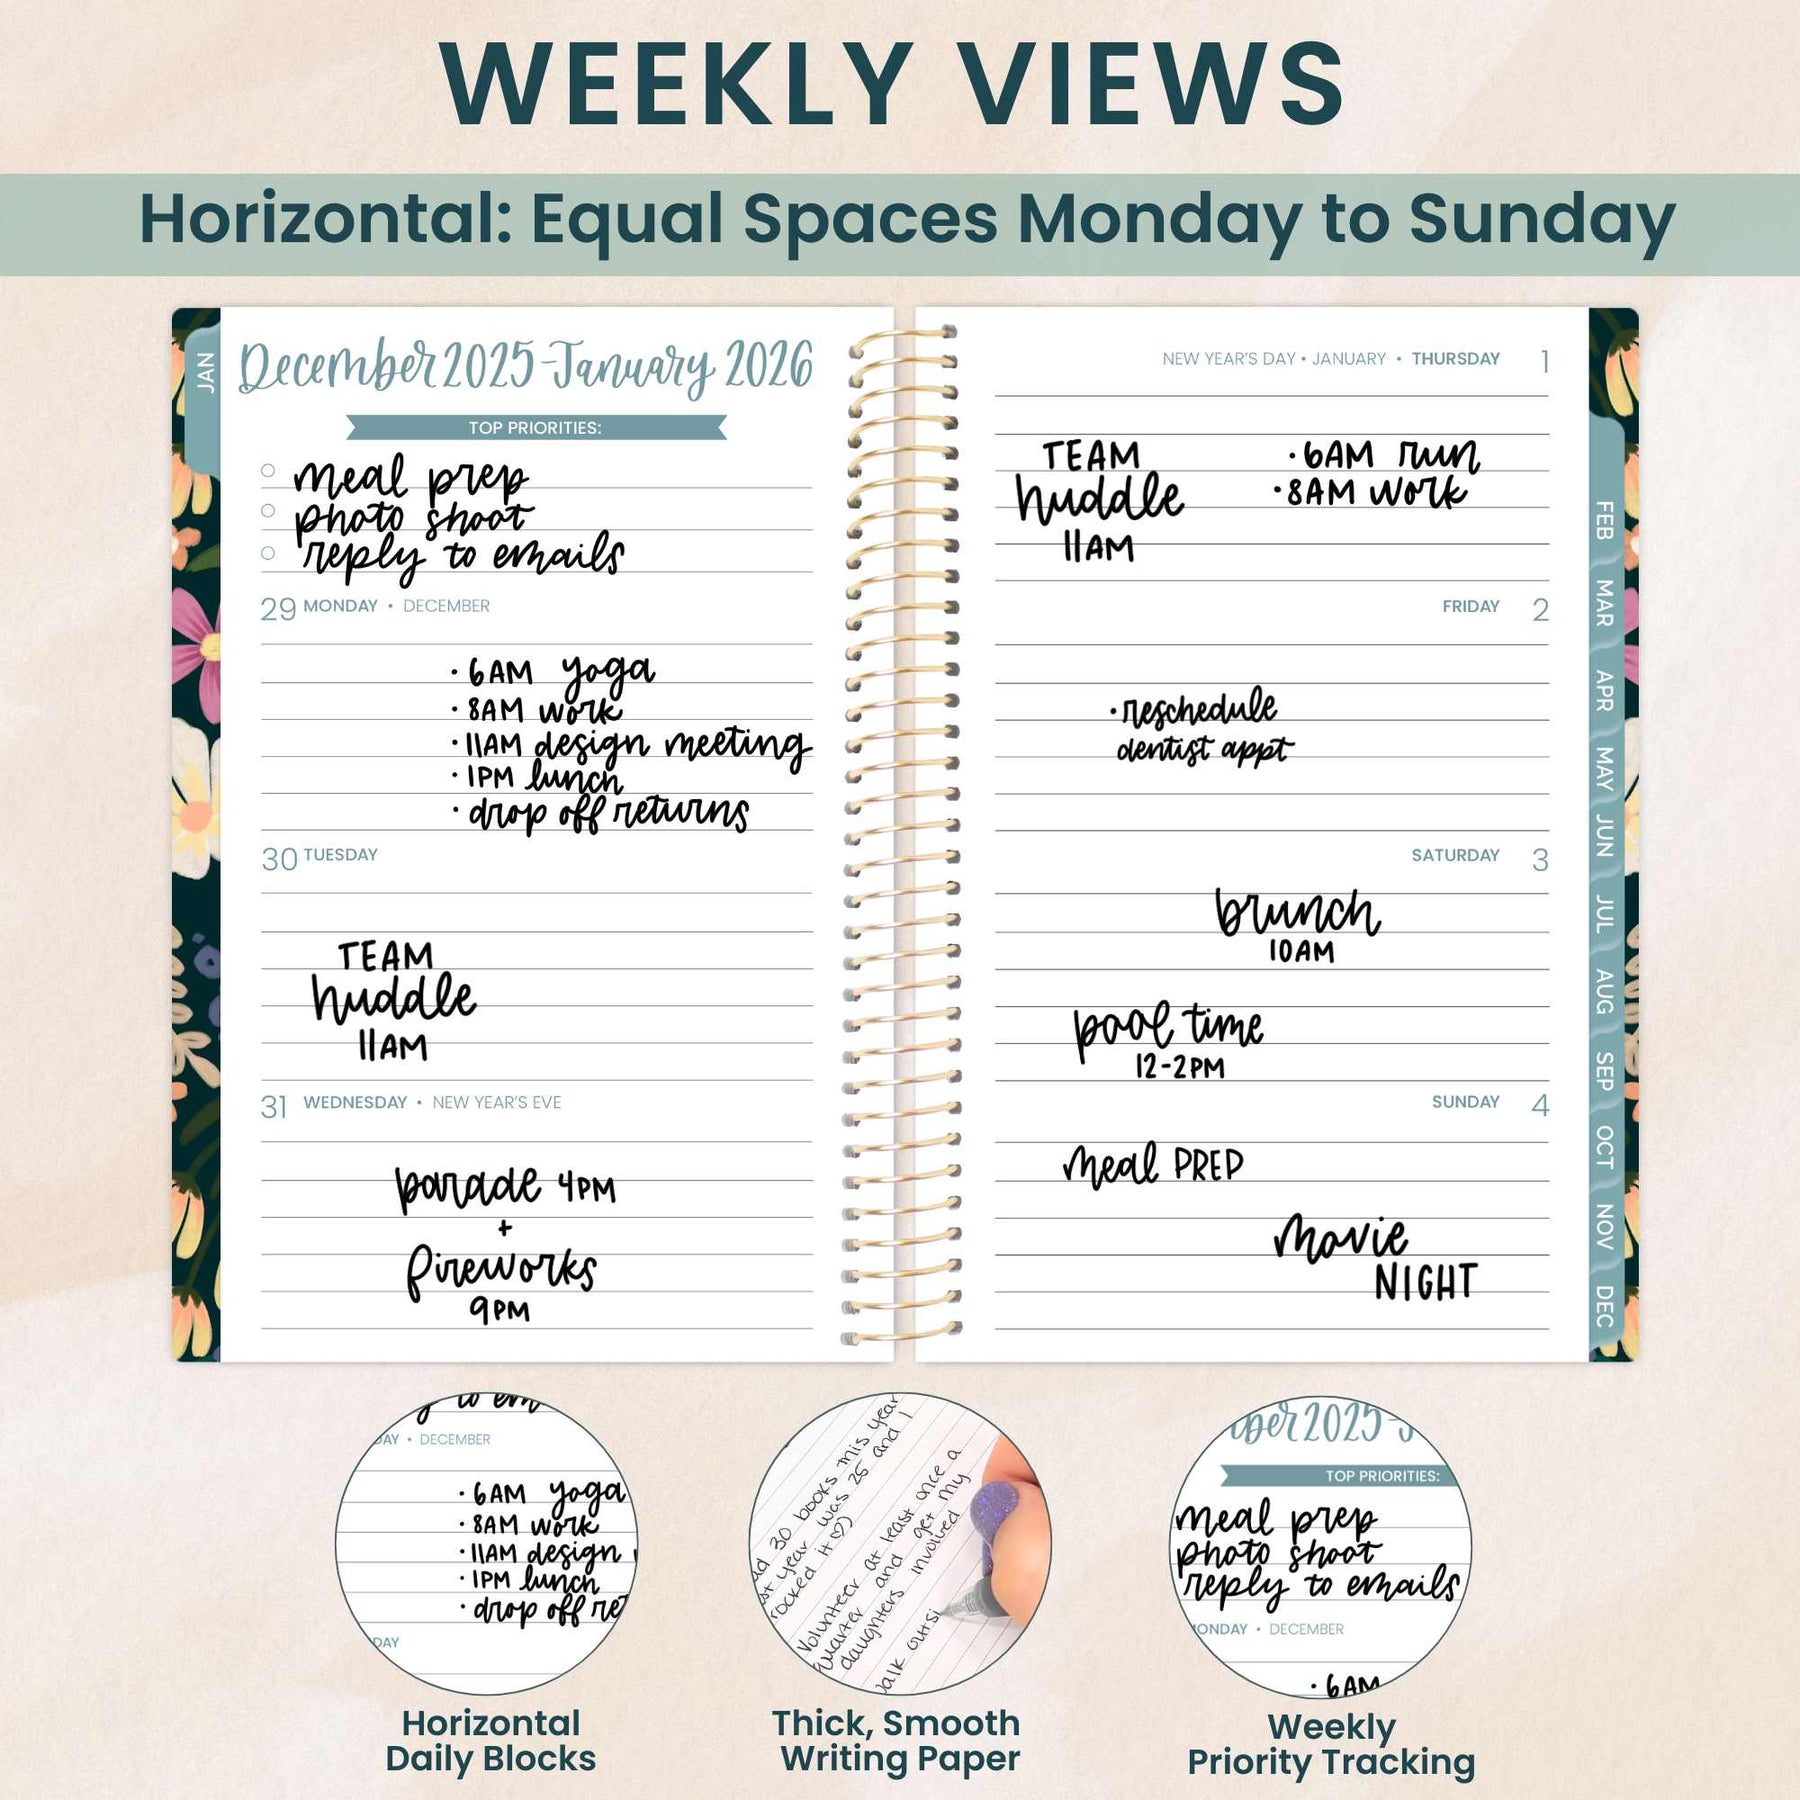 WEEKLY VIEWS
Horizontal: Equal Spaces Monday to Sunday
JAN
December 2025-January 2026
TOP PRIORITIES:
meal prep
photo shoot
reply to emails
29 MONDAY • DECEMBER
• 6AM yoga
• 8AM work
• 11AM design meeting
• 1PM lunch
• drop off returns
30 TUESDAY
TEAM
huddle
11AM
31 WEDNESDAY • NEW YEAR'S EVE
parade 4PM
+
fireworks
9PM
NEW YEAR'S DAY • JANUARY • THURSDAY 1
TEAM
huddle
11AM
• 6AM run
• 8AM work
FRIDAY 2
• reschedule
dentist appt
SATURDAY 3
brunch
10AM
pool time
12-2PM
SUNDAY 4
meal PREP
movie
NIGHT
FEB
MAR
APR
MAY
JUN
JUL
AUG
SEP
OCT
NOV
DEC
to em
DAY • DECEMBER
• 6AM yoga
• 8AM work
• 11AM design
• 1PM lunch
• drop off ret
DAY
Horizontal
Daily Blocks
ad 30 books this year
st year was 25 and I
rocked it ♡)
Volunteer at least once a
quarter and get my
daughters involved
walk outsi
Thick, Smooth
Writing Paper
ber 2025-J
TOP PRIORITIES:
meal prep
photo shoot
reply to emails
MONDAY • DECEMBER
• 6AM
Weekly
Priority Tracking